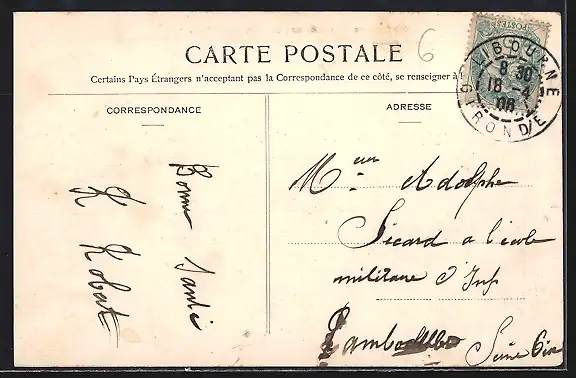 CARTE POSTALE
6
Certains Pays Étrangers n'acceptant pas la Correspondance de ce côté, se renseigner à
CORRESPONDANCE
ADRESSE
POSTES
LIBOURNE
8 30
18 -4
06
GIRONDE
Bonne Santé
K Robert
Adolphe
Sicard a l'école
militaire d'Inf
Seine Oise